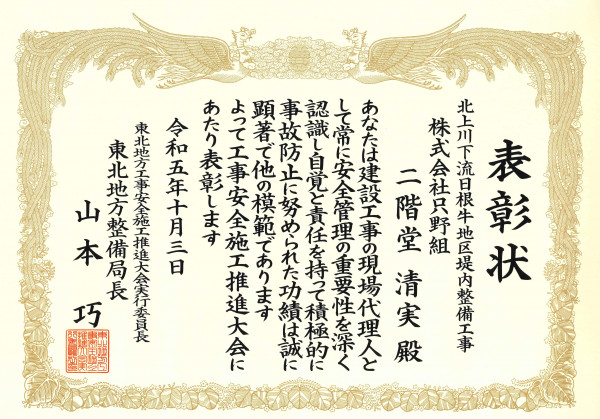 表彰状
北上川下流日根牛地区堤内整備工事
株式会社只野組
二階堂 清実 殿
あなたは建設工事の現場代理人と
して常に安全管理の重要性を深く
認識し自覚と責任を持って積極的に
事故防止に努められた功績は誠に
顕著で他の模範であります
よって工事安全施工推進大会に
あたり表彰します
令和五年十月三日
東北地方工事安全施工推進大会実行委員長
東北地方整備局長
山本 巧